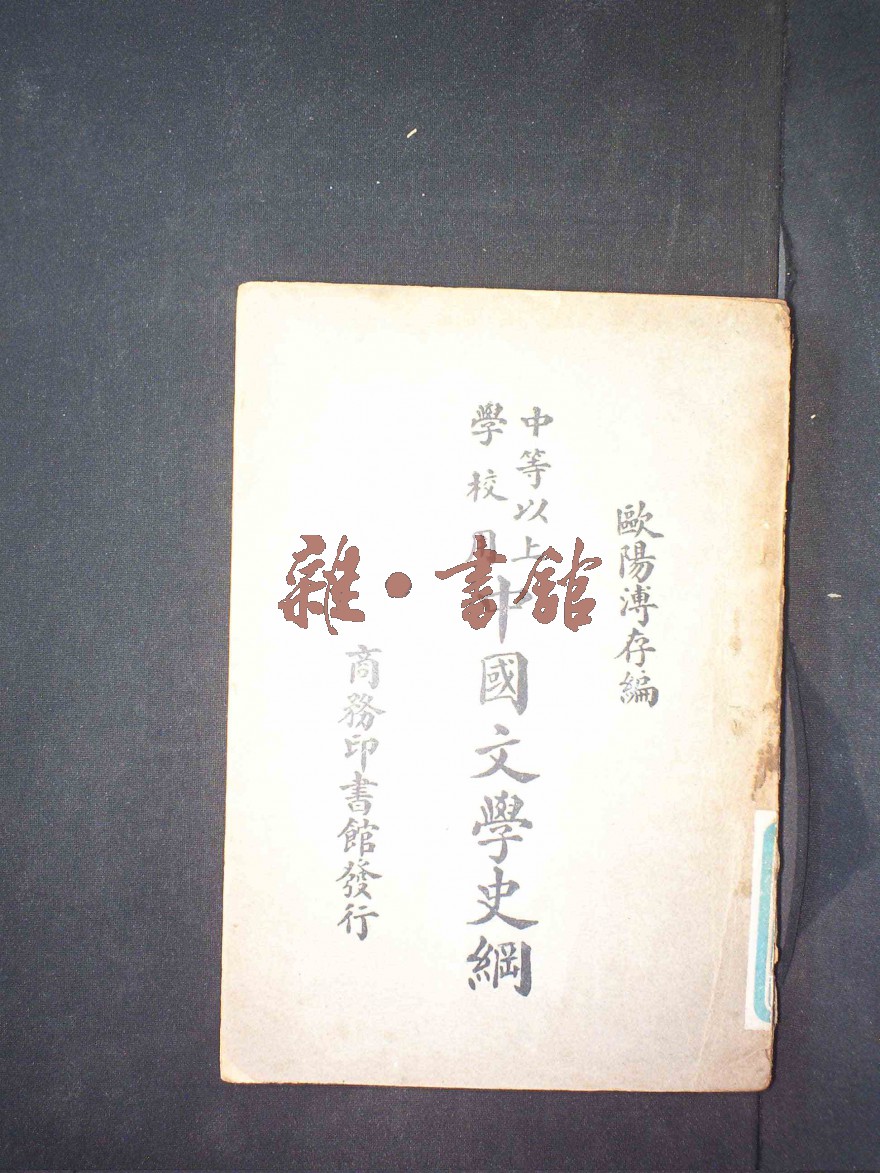 歐陽溥存編
中等以上
學校用
中國文學史綱
商務印書館發行
雜·書館